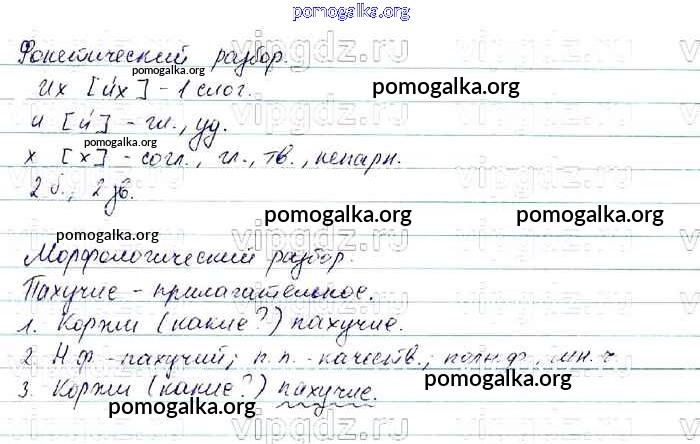 pomogalka.org
Фонетический разбор.
pomogalka.org
Их [и́х] - 1 слог.
pomogalka.org
и [и́] - гл., уд.
pomogalka.org
х [х] - согл., гл., тв., непарн.
2 б., 2 зв.
pomogalka.org
pomogalka.org
pomogalka.org
vipgdz.ru
Морфологический разбор.
Пахучие - прилагательное.
1. Коржи (какие?) пахучие.
2. Н.ф. - пахучий; п.п. - качеств.; полн.ф., мн.ч.
pomogalka.org
3. Коржи (какие?) пахучие.
pomogalka.org
pomogalka.org
vipgdz.ru